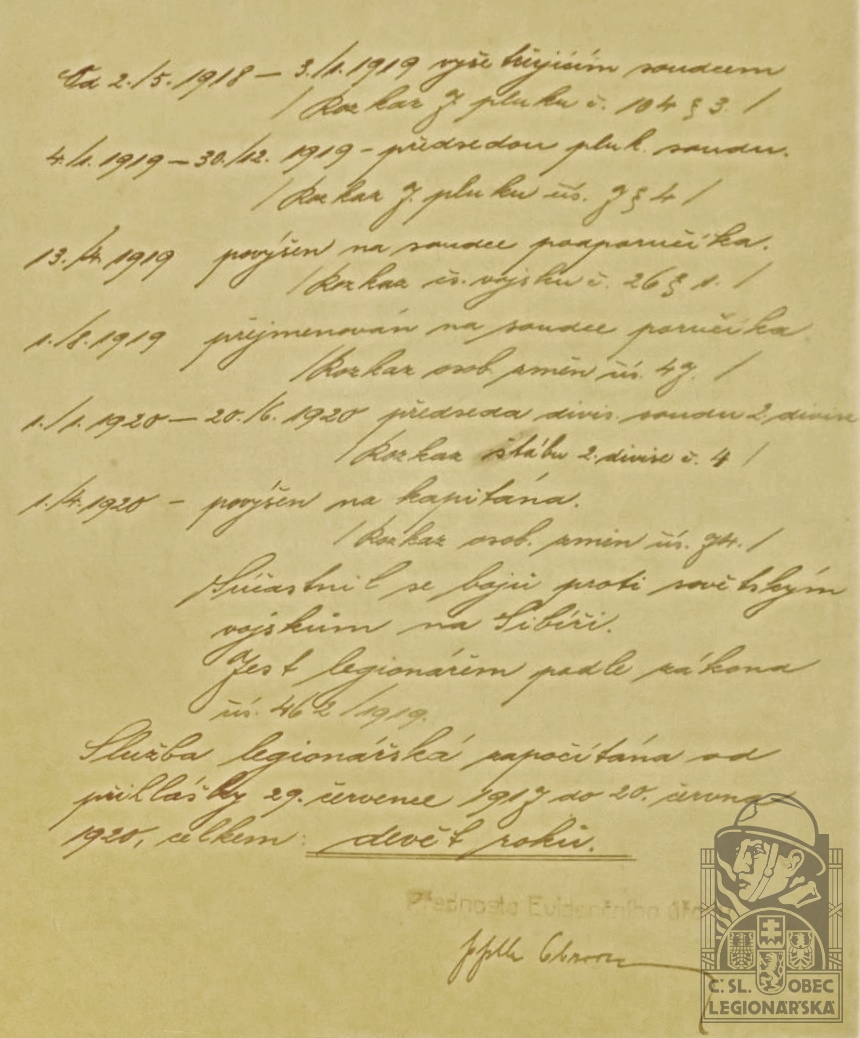 Od 2./5. 1918 – 3./1. 1919 vyšetřujícím soudcem
/ Rozkaz 7. pluku č. 104 § 3. /
4./1. 1919 – 30./12. 1919 – předsedou pluk. soudu.
/ Rozkaz 7. pluku čís. 7 § 4 /
13./4. 1919 povýšen na soudce podporučíka.
/ Rozkaz čs. vojsku č. 26 § 1. /
1./8. 1919 přejmenován na soudce poručíka
/ Rozkaz osob. změn čís. 47. /
1./1. 1920 – 20./6. 1920 předseda divis. soudu 2. divise
/ Rozkaz štábu 2. divise č. 4 /
1./4. 1920 – povýšen na kapitána.
/ Rozkaz osob. změn čís. 74. /
Súčastnil se bojů proti sovětským
vojskům na Sibíři.
Jest legionářem podle zákona
čís. 462/1919.
Služba legionářská započítána od
přihlášky 29. července 1917 do 20. června
1920, celkem: devět roků.
Přednosta Evidenčního úřadu
Č. SL. OBEC
LEGIONÁŘSKÁ